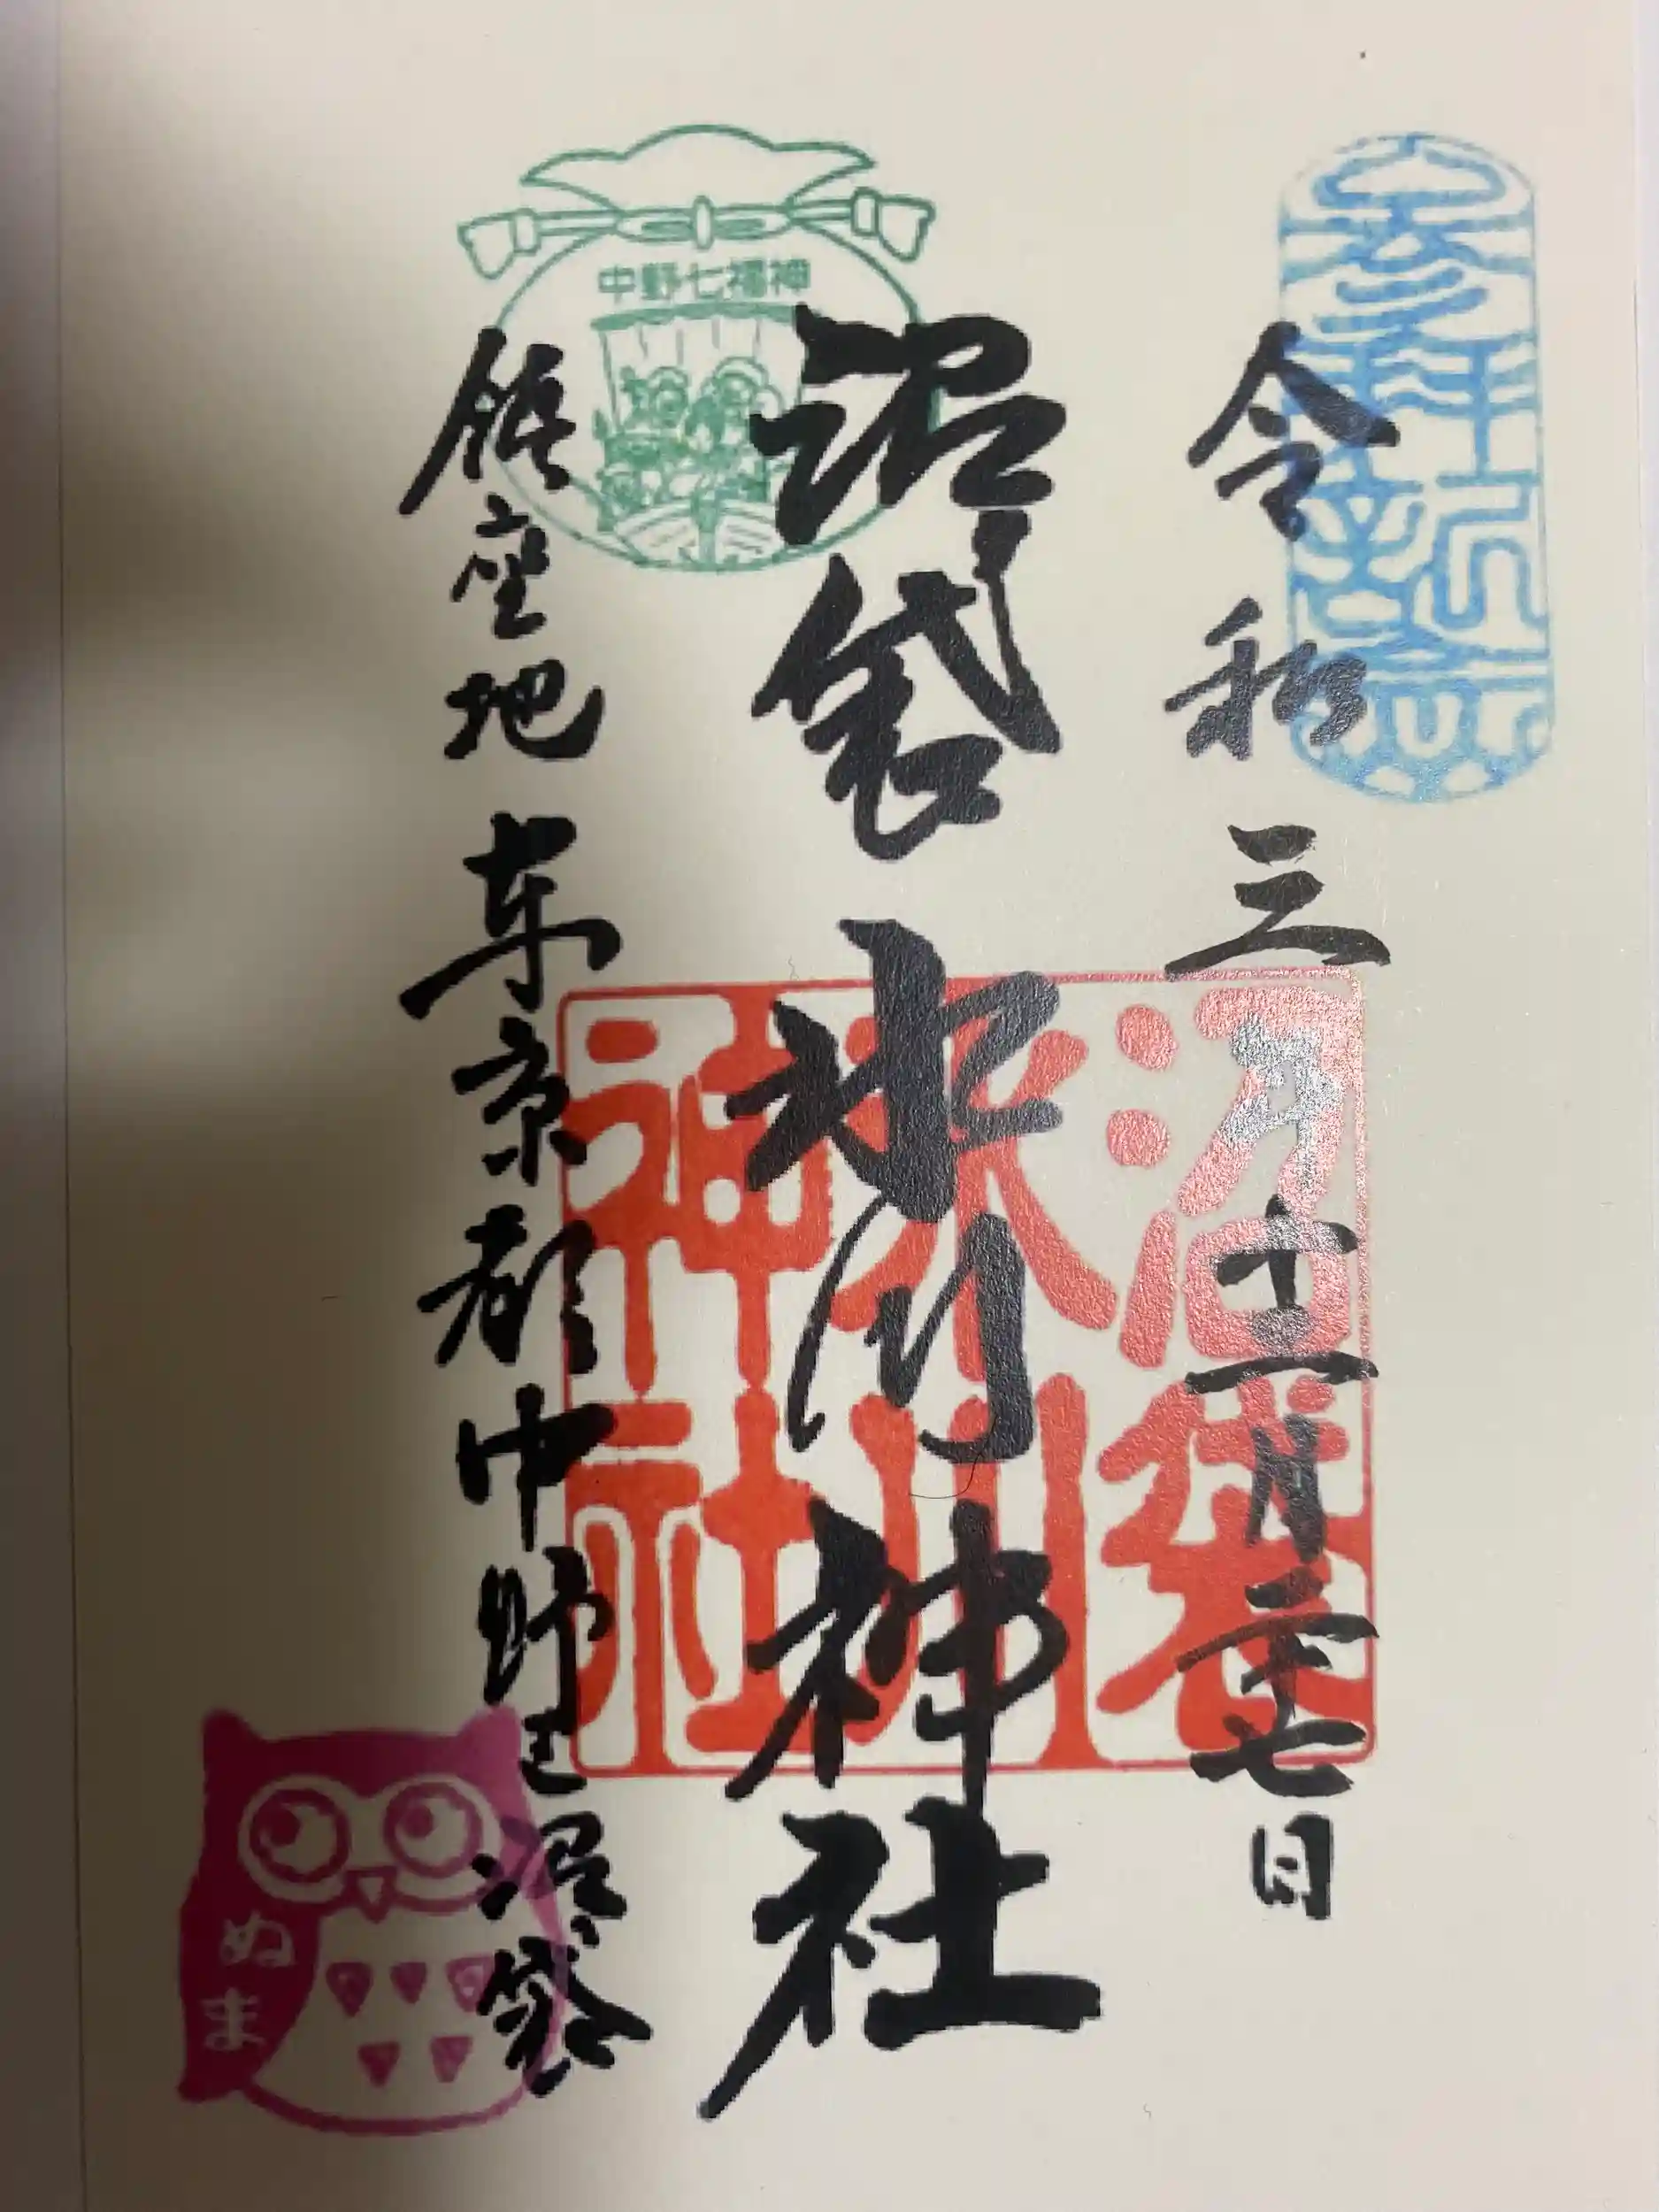 令和三年十二月二十七日
沼袋氷川神社
鎮座地 東京都中野区沼袋
中野七福神
沼袋
氷川
神社
ぬま